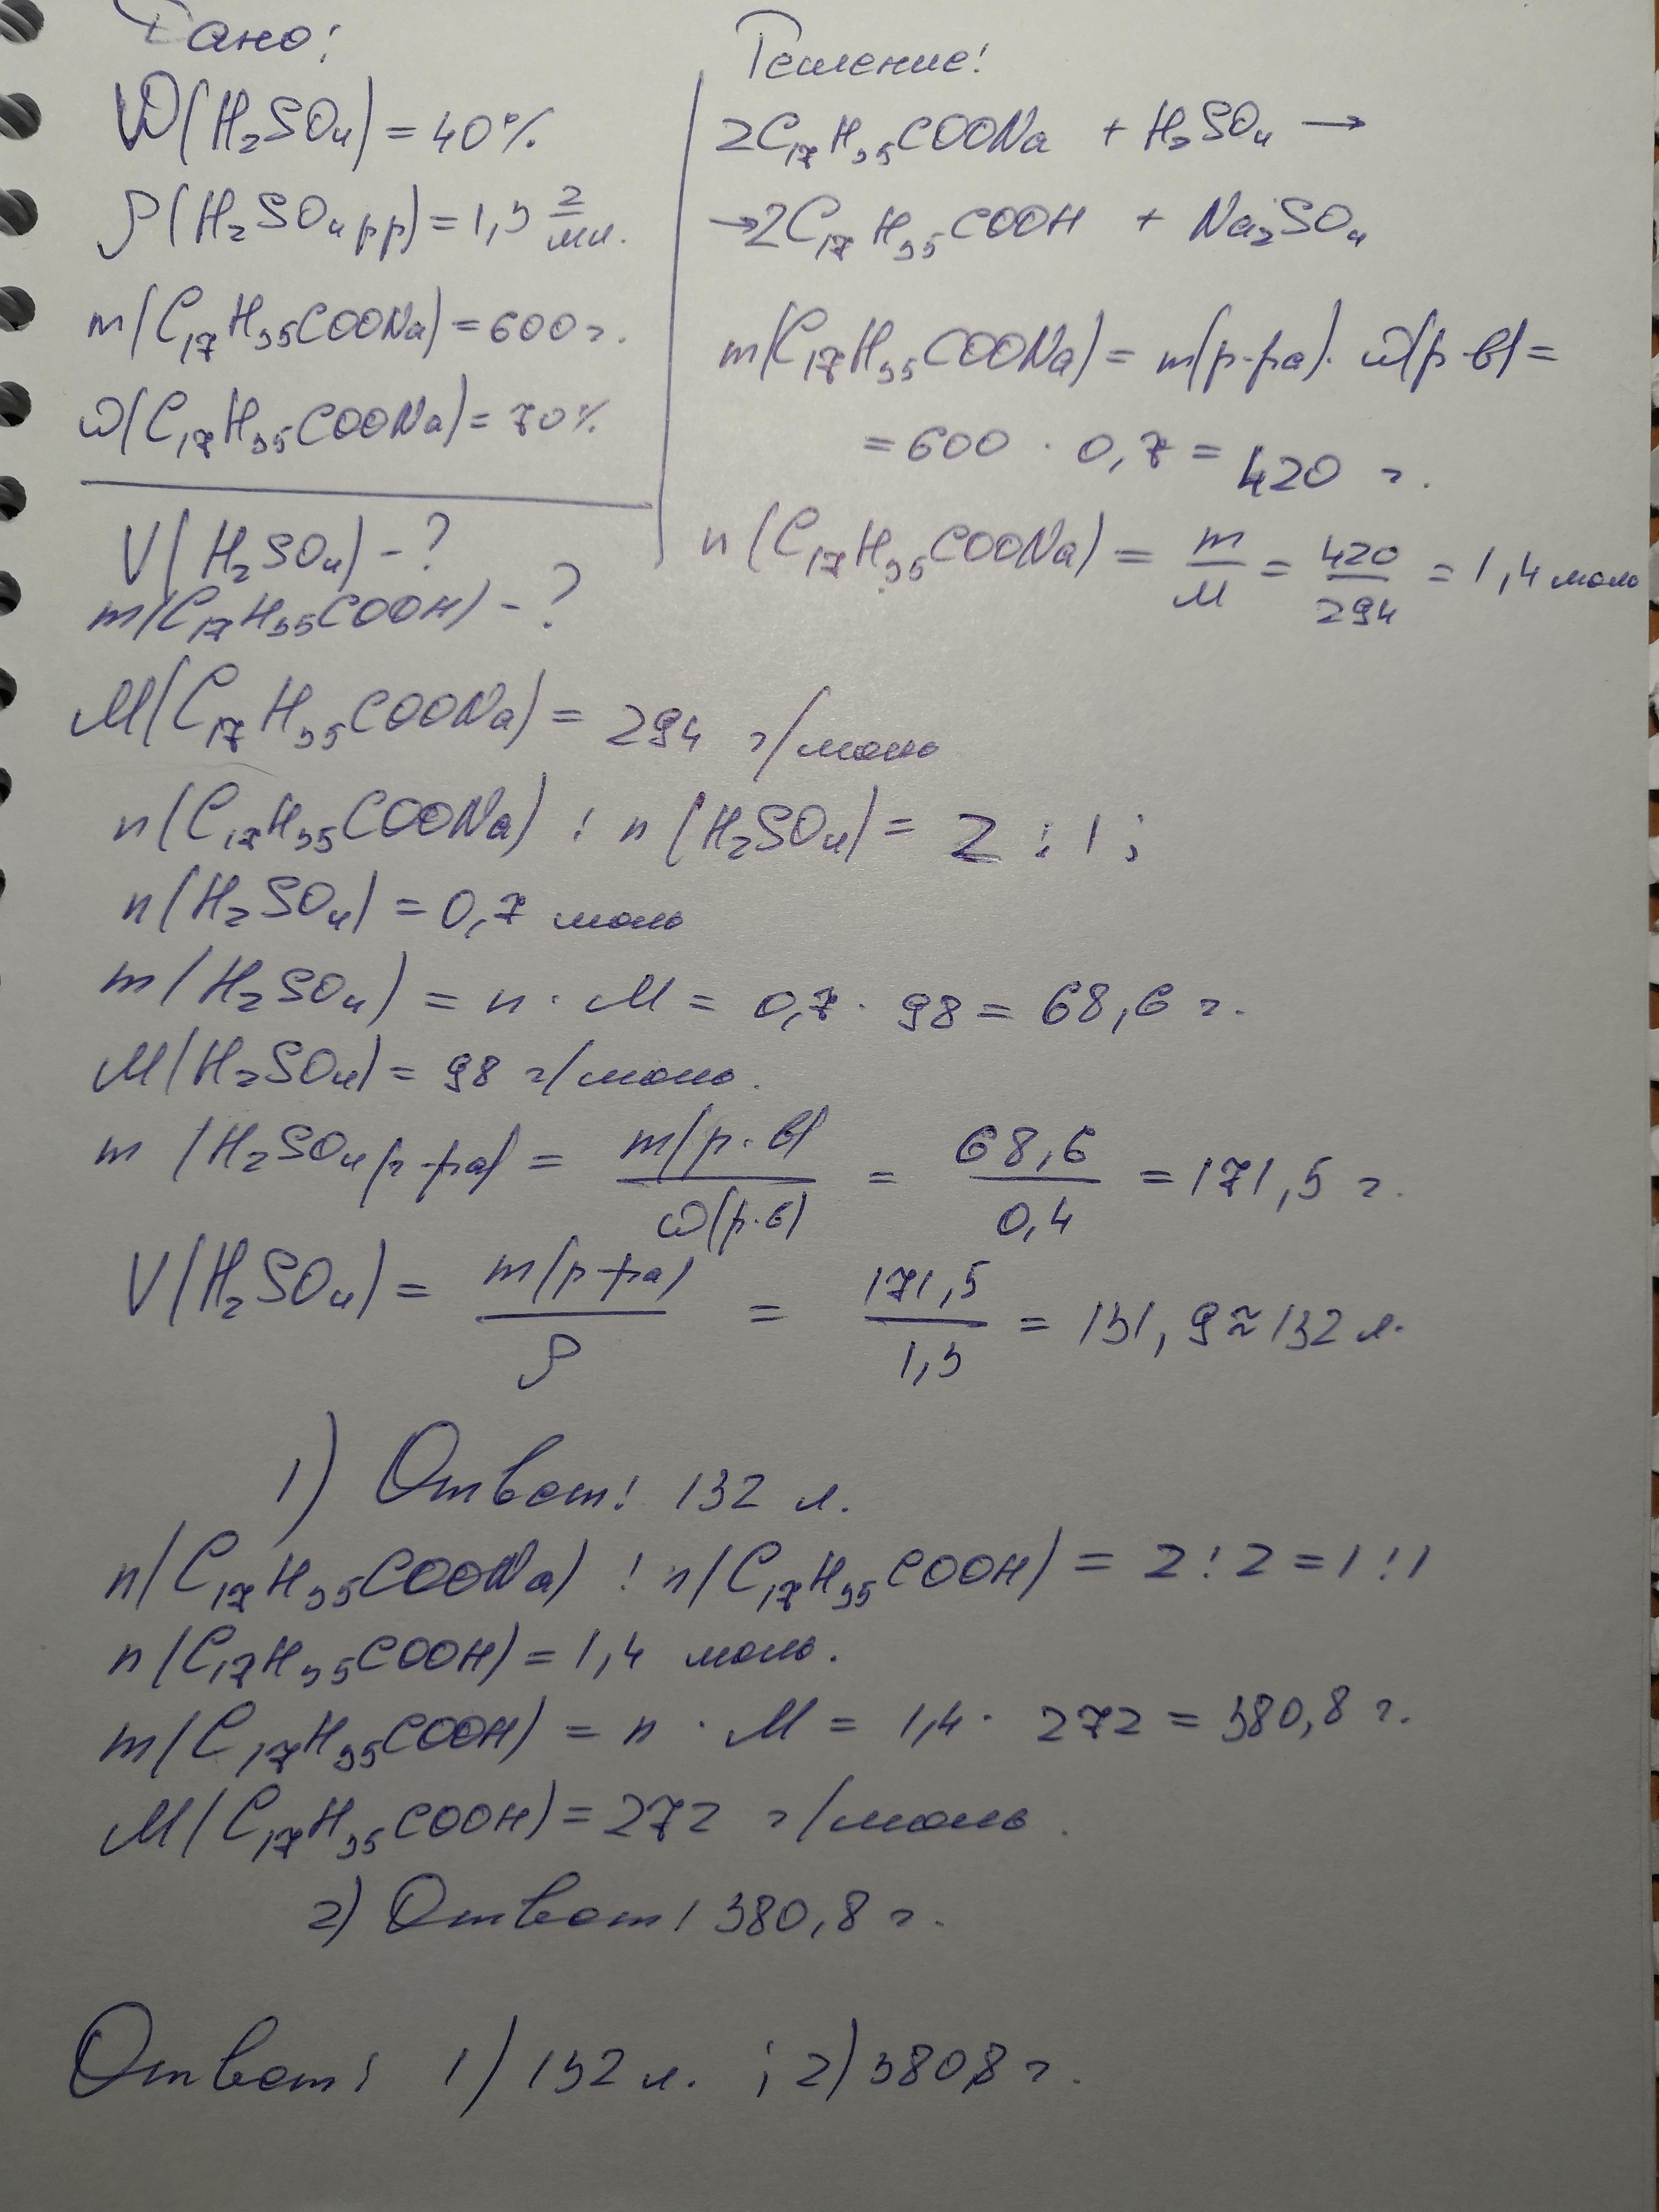 Дано:
W(H₂SO₄) = 40%
ρ(H₂SO₄ рр) = 1,3 г/мл.
m(C₁₇H₃₅COONa) = 600 г.
ω(C₁₇H₃₅COONa) = 70%
V(H₂SO₄) - ?
m(C₁₇H₃₅COOH) - ?
Решение:
2C₁₇H₃₅COONa + H₂SO₄ →
→ 2C₁₇H₃₅COOH + Na₂SO₄
m(C₁₇H₃₅COONa) = m(р-ра) · ω(р-в) =
= 600 · 0,7 = 420 г.
n(C₁₇H₃₅COONa) = m/M = 420/294 = 1,4 моль
M(C₁₇H₃₅COONa) = 294 г/моль
n(C₁₇H₃₅COONa) : n(H₂SO₄) = 2 : 1;
n(H₂SO₄) = 0,7 моль
m(H₂SO₄) = n · M = 0,7 · 98 = 68,6 г.
M(H₂SO₄) = 98 г/моль.
m(H₂SO₄ р-ра) = m(р.в)/ω(р.в) = 68,6/0,4 = 171,5 г.
V(H₂SO₄) = m(р-ра)/ρ = 171,5/1,3 = 131,9 ≈ 132 л.
1) Ответ: 132 л.
n(C₁₇H₃₅COONa) : n(C₁₇H₃₅COOH) = 2 : 2 = 1 : 1
n(C₁₇H₃₅COOH) = 1,4 моль.
m(C₁₇H₃₅COOH) = n · M = 1,4 · 272 = 380,8 г.
M(C₁₇H₃₅COOH) = 272 г/моль.
2) Ответ: 380,8 г.
Ответ: 1) 132 л. ; 2) 380,8 г.